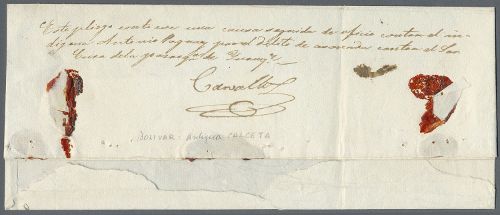 Este pliego contiene una causa seguida de oficio contra el in-
digena Antonio Paguay por el delito de asonada contra el Sor
Cura de la parroqa. de
Carvallo
BOLIVAR - Antigua CALCETA